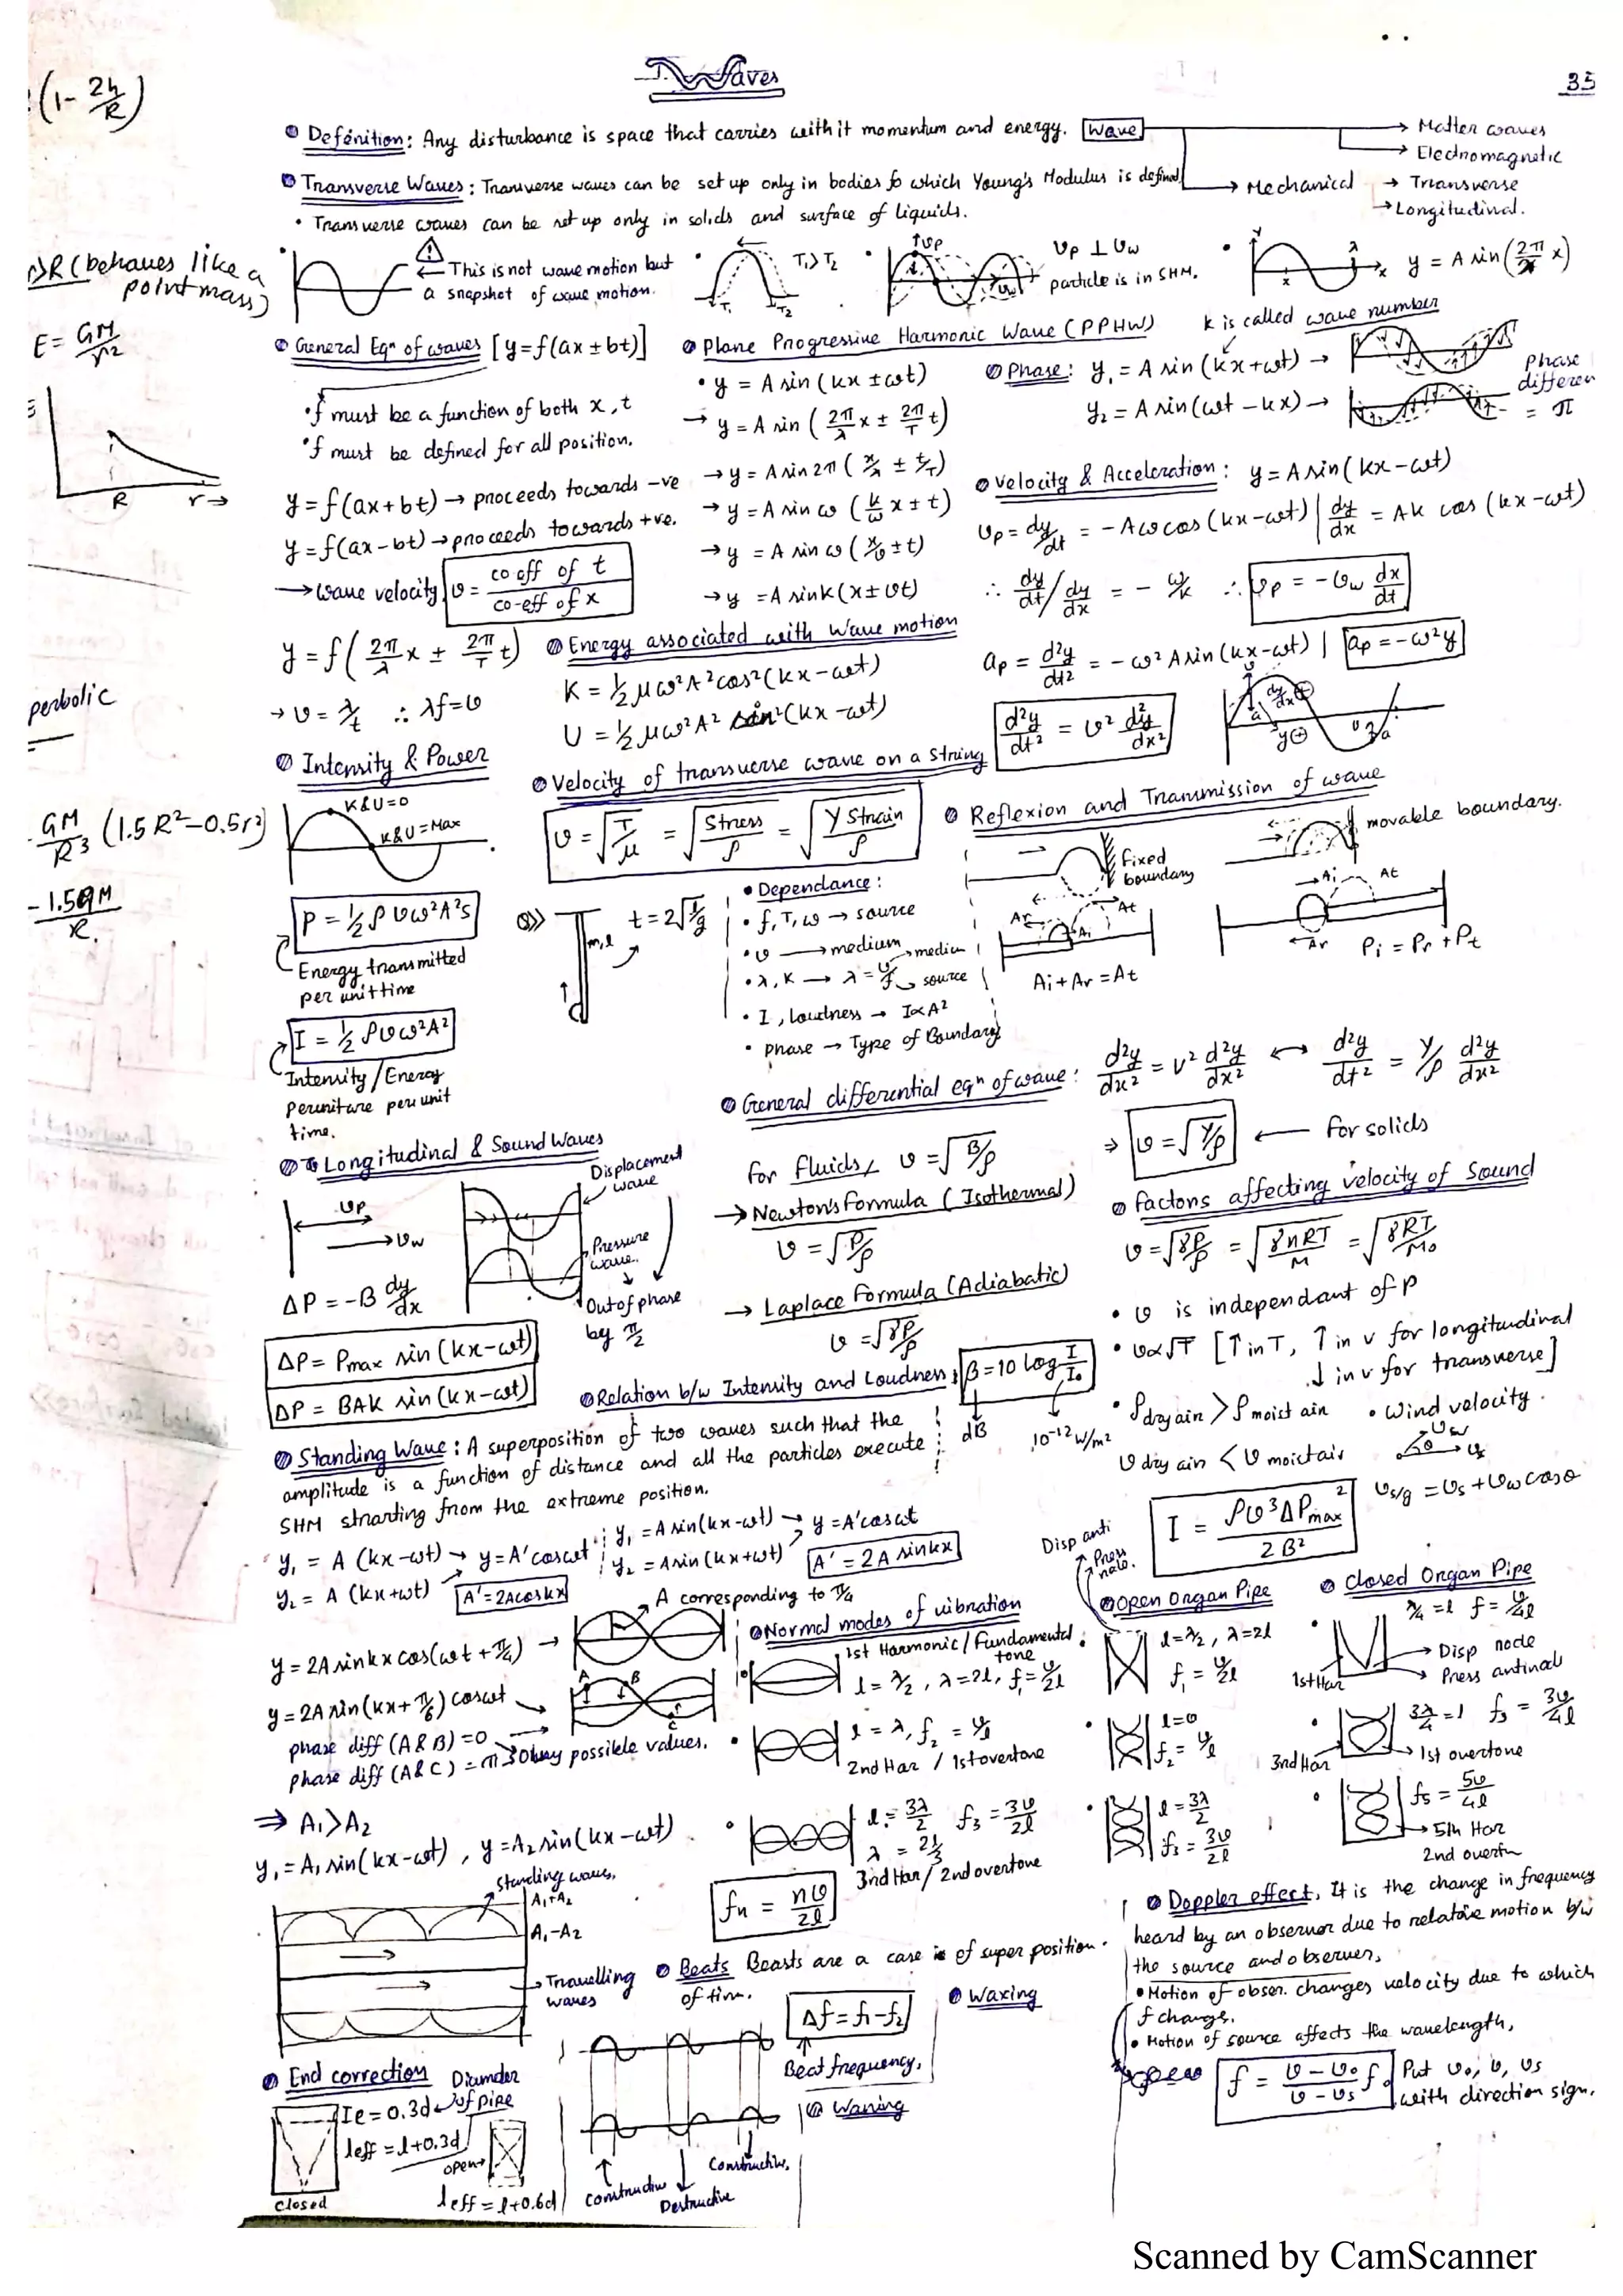 Waves
35
(1- 2h/R)
Definition: Any disturbance is space that carries with it momentum and energy. Wave → Matter waves
→ Electromagnetic
Transverse Waves: Transverse waves can be set up only in bodies fo which Young's Modulus is defined → Mechanical → Transverse
→ Longitudinal.
• Transverse waves can be set up only in solids and surface of liquids.
>R (behaves like a
point mass)
This is not wave motion but
a snapshot of wave motion.
T₁>T₂
T₁ T₂
Vp ⊥ Vw
particle is in SHM.
y = A sin(2π/λ x)
E = GM/r²
R r→
General Eqⁿ of waves [y=f(ax ± bt)]
• f must be a function of both x,t
• f must be defined for all position.
y = f(ax+bt) → proceeds towards -ve
y = f(ax-bt) → proceeds towards +ve.
→ wave velocity, v = co eff of t / co-eff of x
y = f(2π/λ x ± 2π/T t)
→ v = λ/t ∴ λf=v
Plane Progressive Harmonic Wave (PPHW)
• y = A sin (kx ± ωt)
→ y = A sin (2π/λ x ± 2π/T t)
→ y = A sin 2π (x/λ ± t/T)
→ y = A sin ω (k/ω x ± t)
→ y = A sin ω (x/v ± t)
→ y = A sin k (x ± vt)
k is called wave number
Phase: y₁ = A sin (kx+ωt) →
y₂ = A sin (ωt - kx) →
Phase
differen
= π
Velocity & Acceleration: y = A sin(kx-ωt)
Vp = dy/dt = -Aω cos (kx-ωt) | dy/dx = AK cos (kx-ωt)
∴ dy/dt / dy/dx = - ω/k ∴ Vp = -Vw dx/dt
ap = d²y/dt² = -ω² A sin (kx-ωt) | ap = -ω²y
d²y/dt² = v² d²y/dx²
Energy associated with Wave motion
K = ½ μω²A² cos² (kx-ωt)
U = ½ μω²A² sin² (kx-ωt)
perbolic
GM/R³ (1.5R²-0.5r²)
-1.5GM/R.
Intensity & Power
K&U=0
K&U=Max
P = ½ρvω²A²s
Energy transmitted
per unit time
I = ½ρvω²A²
Intensity / Energy
per unit are per unit
time.
Velocity of transverse wave on a string
v = √T/μ = √Stress/ρ = √Y Strain/ρ
Q>> m,l t = 2√l/g
• Dependance:
• f, T, ω → source
• v → medium
• λ, K → λ = v/f medium source
• I, loudness → I∝A²
• phase → Type of Boundary
Reflexion and Transmission of wave
fixed
boundary
movable boundary.
Ar Ai At
Ai + Ar = At
Ai At
Ar Pi = Pr + Pt
General differential eqⁿ of wave: d²y/dx² = v² d²y/dx² ↔ d²y/dt² = Y/ρ d²y/dx²
⇒ v = √Y/ρ ← for solids
for fluids, v = √B/ρ
→ Newton's Formula (Isothermal)
v = √P/ρ
→ Laplace Formula (Adiabatic)
v = √γP/ρ
Longitudinal & Sound Waves
Vp
Vw
Displacement
wave
Pressure
wave.
Out of phase
by π/2
ΔP = -B dy/dx
ΔP = Pmax sin (kx-ωt)
ΔP = BAK sin (kx-ωt)
Factors affecting velocity of Sound
v = √γP/ρ = √γnRT/M = √γRT/M₀
• v is independant of p
• v∝√T [↑ in T, ↑ in v for longitudinal
↓ in v for transverse]
• ρdry air > ρmoist air • Wind velocity.
v dry air < v moist air
Vs/g = Vs + Vw cosθ
I = ρv³ΔP²max / 2B²
Relation b/w Intensity and Loudness: β = 10 log I/I₀
dB 10⁻¹² W/m²
Standing Wave: A superposition of two waves such that the
amplitude is a function of distance and all the particles execute
SHM strarting from the extreme position.
y₁ = A (kx-ωt) → y = A'cosωt
y₂ = A (kx+ωt) A' = 2Acoskx
y₁ = A sin(kx-ωt) → y = A'cosωt
y₂ = A sin (kx+ωt) A' = 2A sinkx
A corresponding to π/4
y = 2A sinkx cos(ωt + π/4) →
y = 2A sin(kx + π/6) cosωt →
A B C
phase diff (A & B) = 0
phase diff (A & C) = π Only possible values.
⇒ A₁>A₂
y₁ = A₁ sin(kx-ωt), y = A₂ sin(kx-ωt)
Standing waves,
A₁+A₂
A₁-A₂
Travelling
waves
Normal modes of vibration
1st Harmonic / Fundamental
tone
l = λ/2, λ = 2l, f₁ = v/2l
l = λ, f₂ = v/l
2nd Har / 1st overtone
l = 3λ/2 f₃ = 3v/2l
λ = 2l/3
3rd Har / 2nd overtone
fn = nv/2l
Disp anti
Press
node.
Open Organ Pipe
l = λ/2, λ = 2l
f₁ = v/2l
l = v
f₂ = v/l
l = 3λ/2
f₃ = 3v/2l
Closed Organ Pipe
λ/4 = l f = v/4l
Disp node
Press antinod
1st Har
3λ/4 = l f₃ = 3v/4l
3rd Har 1st overtone
f₅ = 5v/4l
5th Har
2nd overtn
Beats Beasts are a case is of super position
of tim.
Δf = f₁-f₂
Beat frequency,
Waxing
Waning
Constructive
Destructive
Constructive,
Doppler effect, It is the change in frequency
heard by an observer due to relative motion b/w
the source and observer,
• Motion of obser. changes velocity due to which
f change.
• Motion of source affects the wavelength,
f = v-vo / v-vs f₀ Put vo, v, vs
with direction sign.
End correction
Diamder
of pipe
le = 0.3d
leff = l+0.3d
closed
open
leff = l+0.6d
Scanned by CamScanner